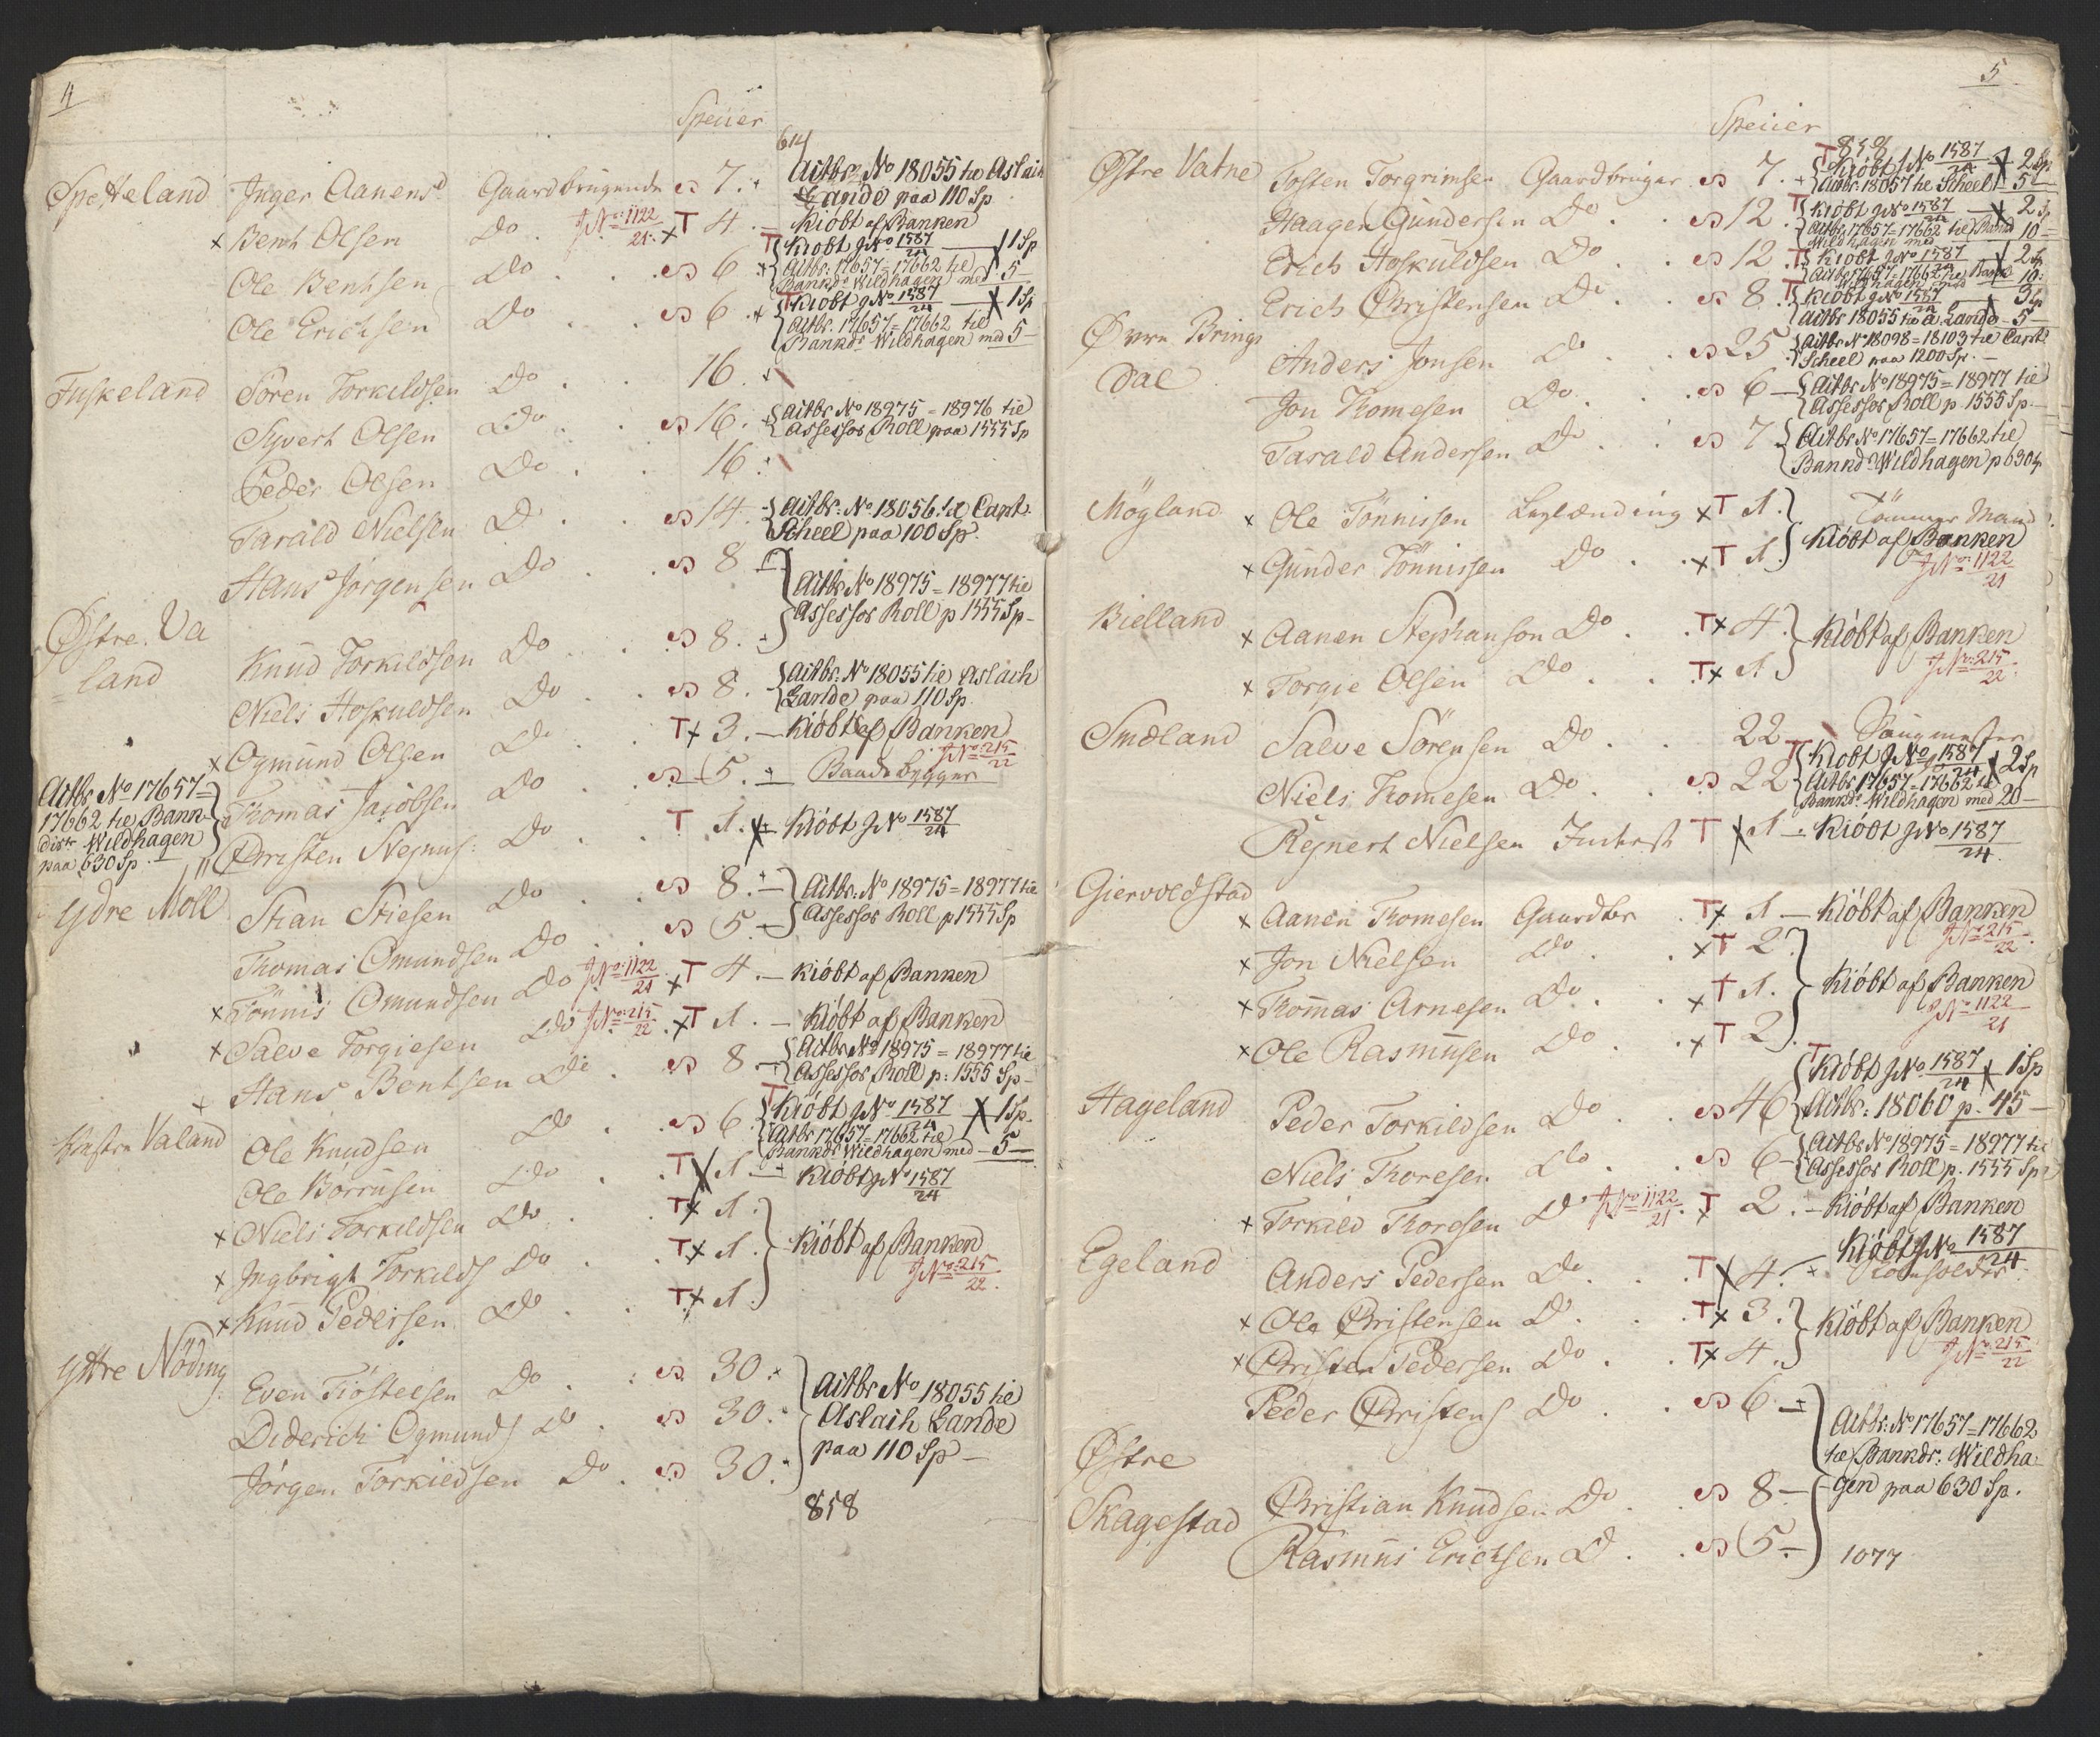 4
Specier
614
Spetteland Inger Aanensd. Gaardbrugende s 7. Actbr. No 18055 til Aslach
Lande paa 110 Sp
x Bent Olsen Do JNo. 1122/21. x T 4. — Kiöbt af Banken
Ole Bentsen Do s 6 T Kiöbt JNo 1587/24 — 1 Sp
Actbr. 17657=17662 til
Bankdr. Wildhagen med 5 —
Ole Erichsen Do s 6 T Kiöbt JNo 1587/24 — 1 Sp
Actbr. 17657=17662 til
Bankdr Wildhagen med 5 —
Fuskeland Sören Torkildsen Do 16.
Syvert Olsen Do s 16. Actbr No 18975=18976 til
Assessor Roll paa 1555 Sp
Peder Olsen Do 16.
Tarald Nielsen Do s 14. Actbr. No. 18056 til Capt.
Scheel paa 100 Sp.
Hans Jörgensen Do s 8 Actbr No 18975=18977 til
Assessor Roll p 1555 Sp —
Östre Va
land Knud Torkildsen Do s 8.
Niels Hoskuldsen Do s 8. Actbr. No 18055 til Aslach
Lande paa 110 Sp.
x Ogmund Olsen Do T x 3. — Kiöbt af Banken
JNo. 215/22
Actbr No 17657=
17662 til Bank
distr Wildhagen
paa 630 Sp.
Thomas Jacobsen Do s 5. Baadebygger
Christen Nejnus: Do T 1. x Kiöbt JNo 1587/24
Ydre Moll Stian Stiesen Do s 8. — Actbr. No 18975=18977 til
Thomas Omundsen Do s 5. — Assessor Roll p 1555 Sp
x Tönnis Omundsen Do JNo. 1122/21 x T 4. — Kiöbt af Banken
x Salve Torgiesen Do JNo. 215/22 x T 1. — Kiöbt af Banken
Hans Bentsen Do s 8 Actbr No 18975=18977 til
Assessor Roll p: 1555 Sp —
Vestre Valand Ole Knudsen Do s 6. T Kiöbt JNo 1587/24 x 1 Sp.
Actbr 17657=17662 til
Bankdr Wildhagen med — 5 —
Ole Börrusen Do T x 1 — Kiöbt JNo 1587/24
x Niels Torkildsen Do T x 1.
x Ingbrigt Torkilds Do T x 1. Kiöbt af Banken
JNo. 215/22.
x Knud Pedersen Do T x 1.
Yttre Nöding Even Tiöstelsen Do s 30. Actbr No 18055 til
Diderich Ogmunds Do s 30. Aslach Lande
Jörgen Torkildsen Do s 30. paa 110 Sp —
858
5
Specier
858
Östre Vatne Tosten Torgrimsen Gaardbruger s 7. T Kiöbt JNo 1587/24 x 2 Sp
Actbr. 18057 til Scheel 5 —
Haagen Gundersen Do s 12. T Kiöbt JNo 1587/24 x 2 Sp
Actbr 17657=17662 til Bankd
Wildhagen med 10 =
Erich Hoskuldsen Do s 12 T Kiöbt JNo 1587/24 2 Sp
Actbr 17657=17662 til Bankd
Wildhagen med 10:
Erich Christensen Do s 8. T Kiöbt JNo 1587/24 3 Sp
Actbr 18055 til A. Lande — 5 —
Övre Brings
dal Anders Jonsen Do s 25 Actbr No 18098=18103 til Capt.
Scheel paa 1200 Sp. —
Jon Thomesen Do s 6 — Actbr No 18975=18977 til
Assessor Roll p 1555 Sp. —
Tarald Andersen Do s 7 Actbr No 17657=17662 til
Bankdr. Wildhagen p 630 Sp
Mögland x Ole Tönnissen Leylænding x T 1. Tömmer Mand
Kiöbt af Banken
x Gunder Tönnissen Do x T 1. JNo. 1122/21
Bielland x Aanen Stephanson Do T x 4. Kiöbt af Banken
x Torgie Olsen Do T x 1 JNo. 215/22
Smeland Salve Sörensen Do 22 Saugmester
Niels Thomesen Do s 22 T Kiöbt JNo 1587/24 x 2 Sp
Actbr 17657=17662 til
Bankdr. Wildhagen med 20 —
Rejnert Nielsen Inderst T x 1 — Kiöbt JNo 1587/24.
Giervoldstad x Aanen Thomesen Gaardbr T x 1 — Kiöbt af Banken
JNo. 215/22.
x Jon Nielsen Do x T 2.
x Thomas Arnesen Do x T 1. Kiöbt af Banken
JNo. 1122/21
x Ole Rasmusen Do x T 2.
Hageland Peder Torkildsen Do s 46 T Kiöbt JNo 1587/24 x 1 Sp
Actbr: 18060 p. 45 —
Niels Thoresen Do s 6 — Actbr No 18975=18977 til
Assessor Roll p. 1555 Sp
x Torkild Thoresen Do JNo 1122/21. T x 2. — Kiöbt af Banken
Egeland Anders Pedersen Do T x 4. Kiöbt JNo 1587/24
x Ole Christensen Do T x 3. Kiöbt af Banken
x Christen Pedersen Do T x 4. JNo. 215/22
Peder Christens Do s 6 — Actbr. No 17657=17662
til Bankdr. Wildha
gen paa 630 Sp.
Östre
Skagestad Christian Knudsen Do s 8 —
Rasmus Erichsen Do s 5. —
1077